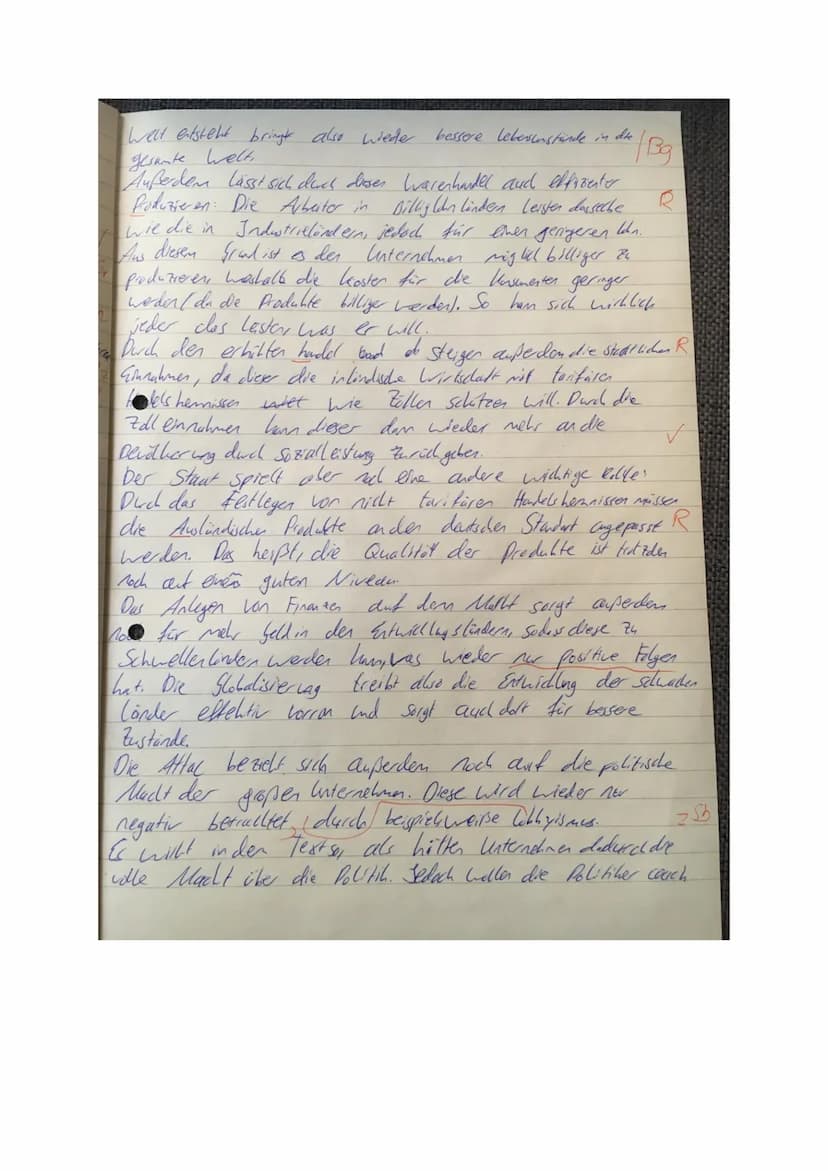 Welt entsteht bringt also wieder bessere Lebensumstände in die /Bg
gesamte Welt.
Außerdem lässt sich durch diesen Warenhandel auch effizienter
Produzieren: Die Arbeiter in Billiglohnländen leisten dasselbe R
wie die in Industrieländern, jedoch für einen geringeren Lohn.
Aus diesem Grund ist es den Unternehmen möglich billiger zu
produzieren, weshalb die Kosten für die Konsumenten geringer
werden (da die Produkte billiger werden). So kann sich wirklich
jeder das leisten, was er will.
Durch den erhöhten handel steigen außerdem die staatlichen R
Einnahmen, da dieser die inländische Wirtschaft mit tarifären
Handelshemnissen wie Zöllen schützen will. Durch die
Zolleinnahmen kann dieser dann wieder mehr an die
Bevölkerung durch Sozialleistung zurückgeben. ✓
Der Staat spielt aber noch eine andere wichtige Rolle:
Durch das Festlegen von nicht tarifären Handelshemnissen müssen
die Ausländischen Produkte an den deutschen Standart angepasst R
werden. Das heißt, die Qualität der Produkte ist trotzdem
noch auf einem guten Niveau.
Das Anlegen von Finanzen auf dem Markt sorgt außerdem
noch für mehr Geld in den Entwicklungsländern, sodass diese zu
Schwellenländen werden können, was wieder nur positive Folgen
hat. Die Globalisierung treibt also die Entwicklung der schwachen
Länder effektiv vorran und sorgt auch dort für bessere
Zustände.
Die Attac bezieht sich außerdem noch auf die politische
Macht der großen Unternehmen. Diese wird wieder nur
negativ betrachtet, durch beispielsweise Lobbyismus. Sb
Es wirkt in den Text so, als hätten Unternehmen dadurch die
volle Macht über die Politik. Jedoch wollen die Politiker